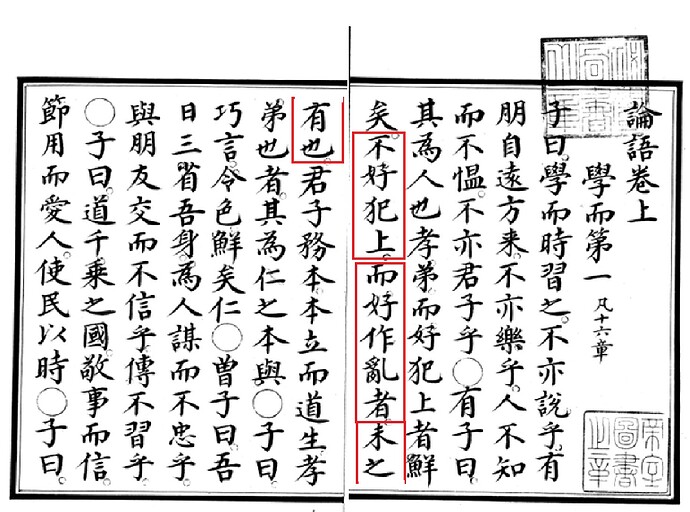 論語卷上
學而第一 凡十六章
子曰。學而時習之。不亦說乎。有
朋自遠方來。不亦樂乎。人不知
而不慍。不亦君子乎。〇有子曰。
其為人也孝弟。而好犯上者鮮
矣。不好犯上。而好作亂者。未之
有也。君子務本。本立而道生。孝
弟也者。其為仁之本與。〇子曰。
巧言。令色。鮮矣仁〇曾子曰。吾
日三省吾身。為人謀而不忠乎。
與朋友交而不信乎。傳不習乎。
〇子曰。道千乘之國。敬事而信。
節用而愛人。使民以時〇子曰。